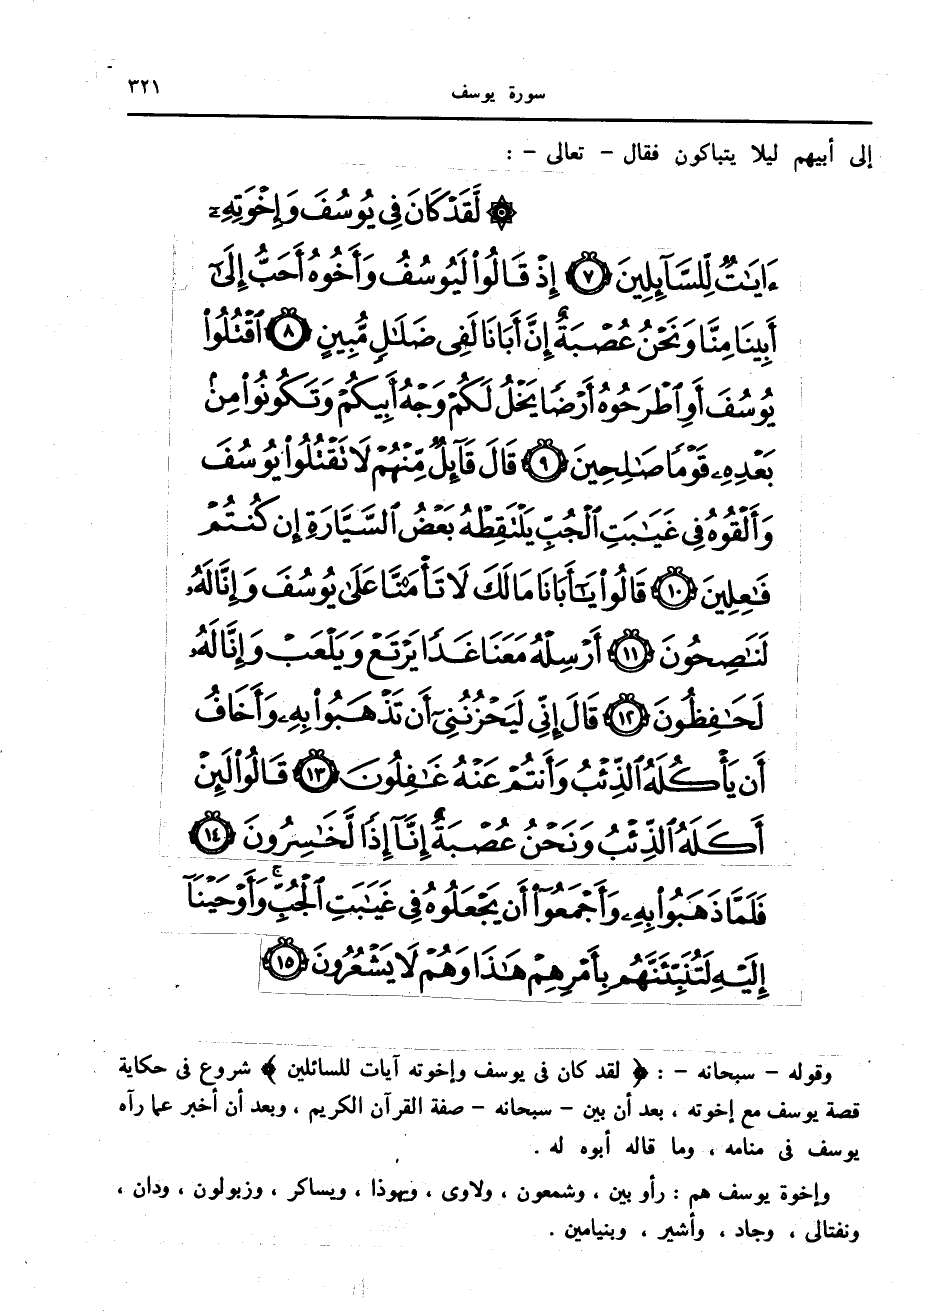 سورة يوسف ٣٢١
إلى أبيهم ليلا يتباكون فقال – تعالى – :
۞ لَّقَدْ كَانَ فِى يُوسُفَ وَإِخْوَتِهِۦٓ
ءَايَٰتٌ لِّلسَّآئِلِينَ ٧ إِذْ قَالُوا۟ لَيُوسُفُ وَأَخُوهُ أَحَبُّ إِلَىٰٓ
أَبِينَا مِنَّا وَنَحْنُ عُصْبَةٌ إِنَّ أَبَانَا لَفِى ضَلَٰلٍ مُّبِينٍ ٨ ٱقْتُلُوا۟
يُوسُفَ أَوِ ٱطْرَحُوهُ أَرْضًا يَخْلُ لَكُمْ وَجْهُ أَبِيكُمْ وَتَكُونُوا۟ مِنۢ
بَعْدِهِۦ قَوْمًا صَٰلِحِينَ ٩ قَالَ قَآئِلٌ مِّنْهُمْ لَا تَقْتُلُوا۟ يُوسُفَ
وَأَلْقُوهُ فِى غَيَٰبَتِ ٱلْجُبِّ يَلْتَقِطْهُ بَعْضُ ٱلسَّيَّارَةِ إِن كُنتُمْ
فَٰعِلِينَ ١٠ قَالُوا۟ يَٰٓأَبَانَا مَالَكَ لَا تَأْمَ۫نَّا عَلَىٰ يُوسُفَ وَإِنَّا لَهُۥ
لَنَٰصِحُونَ ١١ أَرْسِلْهُ مَعَنَا غَدًا يَرْتَعْ وَيَلْعَبْ وَإِنَّا لَهُۥ
لَحَٰفِظُونَ ١٢ قَالَ إِنِّى لَيَحْزُنُنِىٓ أَن تَذْهَبُوا۟ بِهِۦ وَأَخَافُ
أَن يَأْكُلَهُ ٱلذِّئْبُ وَأَنتُمْ عَنْهُ غَٰفِلُونَ ١٣ قَالُوا۟ لَئِنْ
أَكَلَهُ ٱلذِّئْبُ وَنَحْنُ عُصْبَةٌ إِنَّآ إِذًا لَّخَٰسِرُونَ ١٤
فَلَمَّا ذَهَبُوا۟ بِهِۦ وَأَجْمَعُوٓا۟ أَن يَجْعَلُوهُ فِى غَيَٰبَتِ ٱلْجُبِّ ۚ وَأَوْحَيْنَآ
إِلَيْهِ لَتُنَبِّئَنَّهُم بِأَمْرِهِمْ هَٰذَا وَهُمْ لَا يَشْعُرُونَ ١٥
وقوله – سبحانه – : ﴿ لقد كان فى يوسف وإخوته آيات للسائلين ﴾ شروع فى حكاية
قصة يوسف مع إخوته ، بعد أن بين – سبحانه – صفة القرآن الكريم ، وبعد أن أخبر عما رآه
يوسف فى منامه ، وما قاله أبوه له .
وإخوة يوسف هم : رأو بين ، وشمعون ، ولاوى ، ويهوذا ، ويساكر ، وزبولون ، ودان ،
ونفتالى ، وجاد ، وأشير ، وبنيامين .